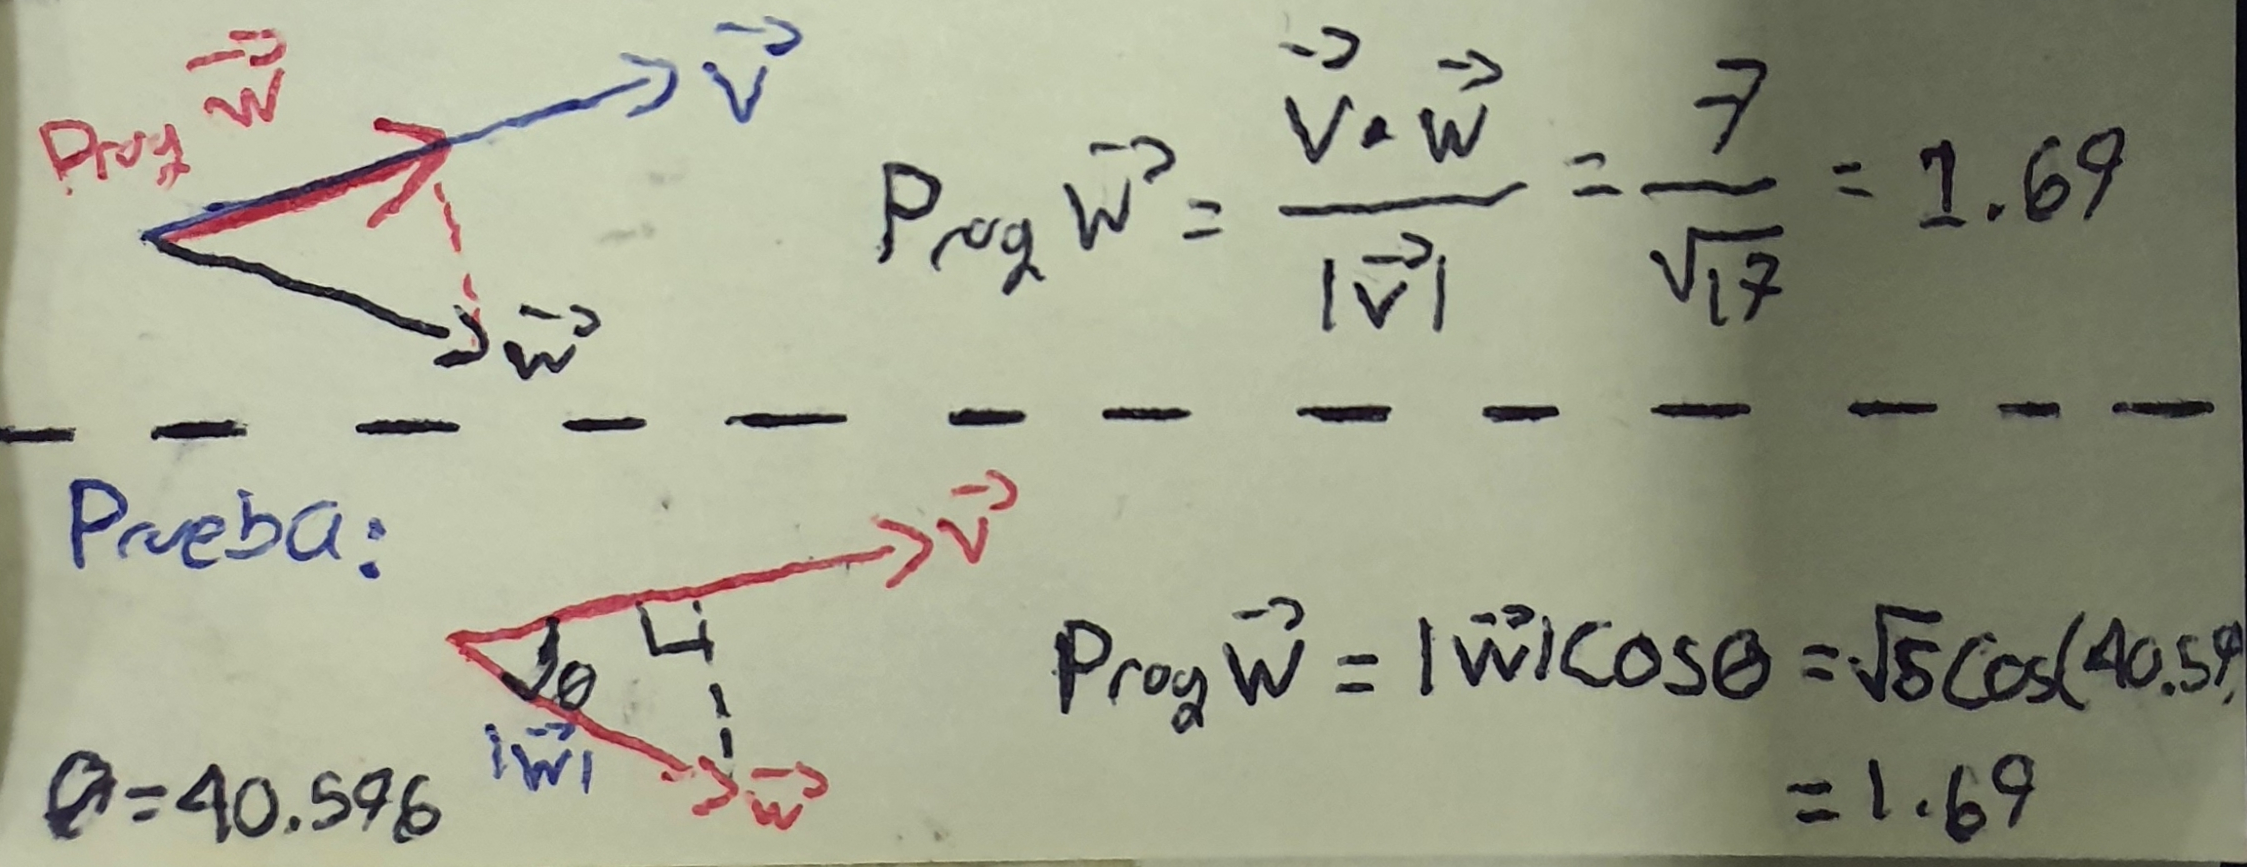 Proy w⃗
v⃗
w⃗
Proy w⃗ = v⃗ • w⃗ / |v⃗| = 7 / √17 = 1.69
Prueba:
v⃗
θ
|w⃗|
w⃗
θ=40.596
Proy w⃗ = |w⃗|cosθ = √5 cos(40.59
= 1.69